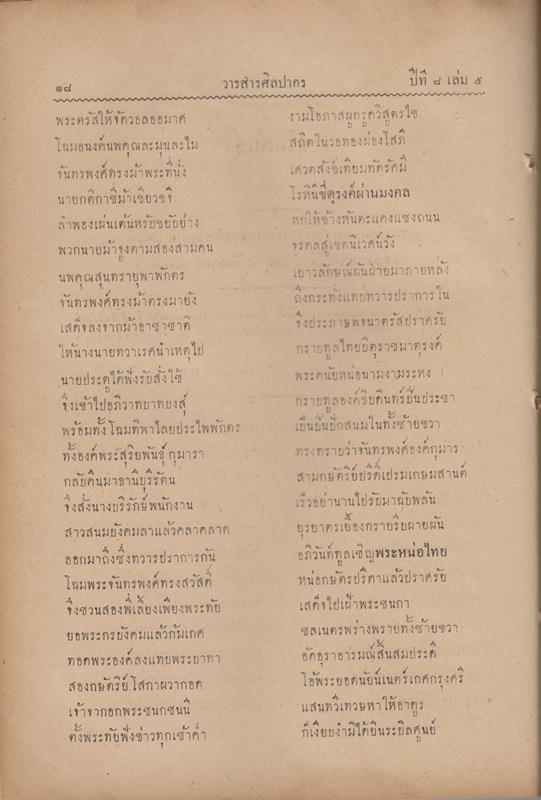 ๑๘ วารสารศิลปากร ปีที่ ๘ เล่ม ๕
พระตรัสให้จัดวอลออมาศ งามโอภาสผูกรูดวิสูตรไข
โฉมอนงค์นพคุณละมุนละไม สถิตในวอทองผ่องโสภี
จันทรพงศ์ทรงม้าพระที่นั่ง เศวตสังข์เทียมทัดรัศมี
นายกติกาขี่ม้าเขียวขจี โรหินีขี่ดุรงค์ผ่านมงคล
ลำพองเผ่นเต้นหรับขยับย่าง หกให้ช้างหันตะแคงแซงถนน
พวกนายม้าจูงตามสองสามคน จรดลสู่เขตนิเวศน์วัง
นพคุณสุนทรายุพาพักตร เยาวลักษณ์ผันผ้ายมาภายหลัง
จันทรพงศ์ทรงม้าตรงมายัง ถึงกระทั่งแทบทวารปราการใน
เสด็จลงจากม้าอาชาชาติ จึ่งประภาษพจนาตรัสปราศรัย
ให้นางนายทวาเรศนำเหตุไป กราบทูลไทยบิตุราชมาตุรงค์
นายประตูได้ฟังรับสั่งใช้ พระดนัยหน่อนามงามระหง
จึ่งเข้าไปอภิวาทบาทบงสุ์ กราบทูลองค์อธิบดินทร์ปิ่นประชา
พร้อมทั้งโฉมทิพาไลยประไพพักตร เป็นปิ่นปักสนมในทั้งซ้ายขวา
ทั้งองค์พระสุริยพันธุ์กุมารา ทรงทราบว่าจันทรพงศ์องค์กุมาร
กลับคืนมาธานีบุรีรัตน สามกษัตริย์ปรีดิ์เปรมเกษมสานต์
จึ่งสั่งนางบริรักษ์พนักงาน เร็วอย่านานไปรับมาฉับพลัน
สาวสนมบังคมลาแล้วคลาคลาด ยุรยาตรเยื้องกรายรีบผายผัน
ออกมาถึงซึ่งทวารปราการกัน อภิวันท์ทูลเชิญพระหน่อไทย
โฉมพระจันทรพงศ์ทรงสวัสดิ์ หน่อกษัตริยปรีดาแล้วปราศรัย
จึ่งชวนสองพี่เลี้ยงเพียงพระทัย เสด็จไปเฝ้าพระชนกา
ยอพระกรบังคมแล้วก้มเกศ ชลเนตรพร่างพรายทั้งซ้ายขวา
ทอดพระองค์ลงแทบพระบาทา อัดอุราอารมณ์สิ้นสมประดี
สองกษัตริย์โสกาผวากอด โอ้พระยอดนัยน์เนตร์เกศกรุงศรี
เจ้าจากอกพระชนกชนนี แสนทวีเทวษหาให้อาดูร
ตั้งพระทัยฟังข่าวทุกเช้าค่ำ ก็เงียบงำมิได้ยินระบิลศูนย์